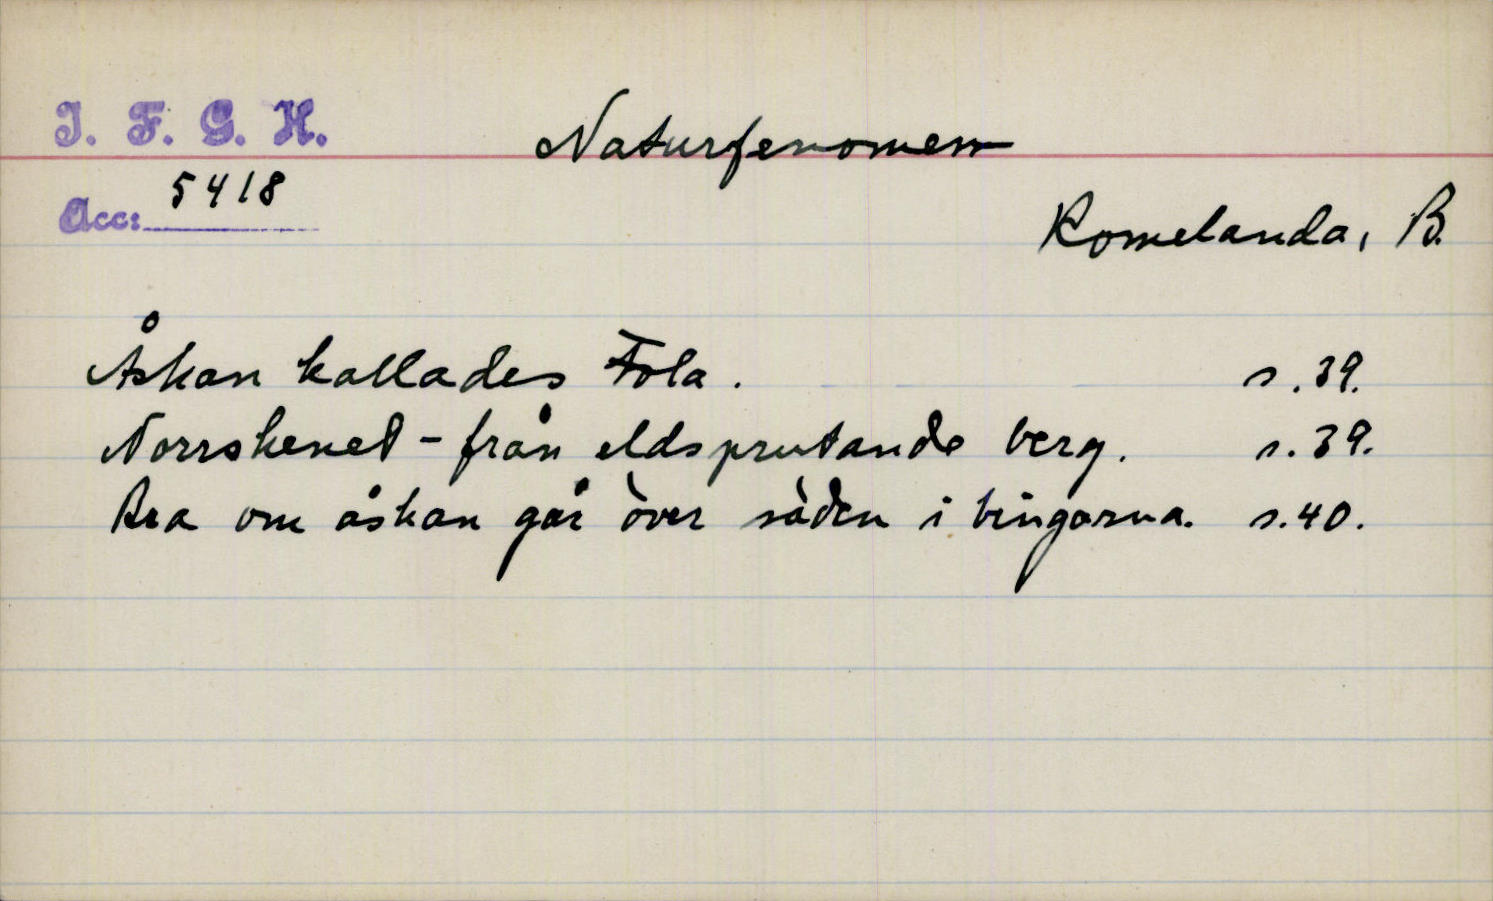 I. F. G. H.
Naturfenomen
Acc: 5418
Romelanda, B.
Åskan kallades Fola. s. 39.
Norrskenet - från eldsprutande berg. s. 39.
Bra om åskan går över säden i bingarna. s. 40.